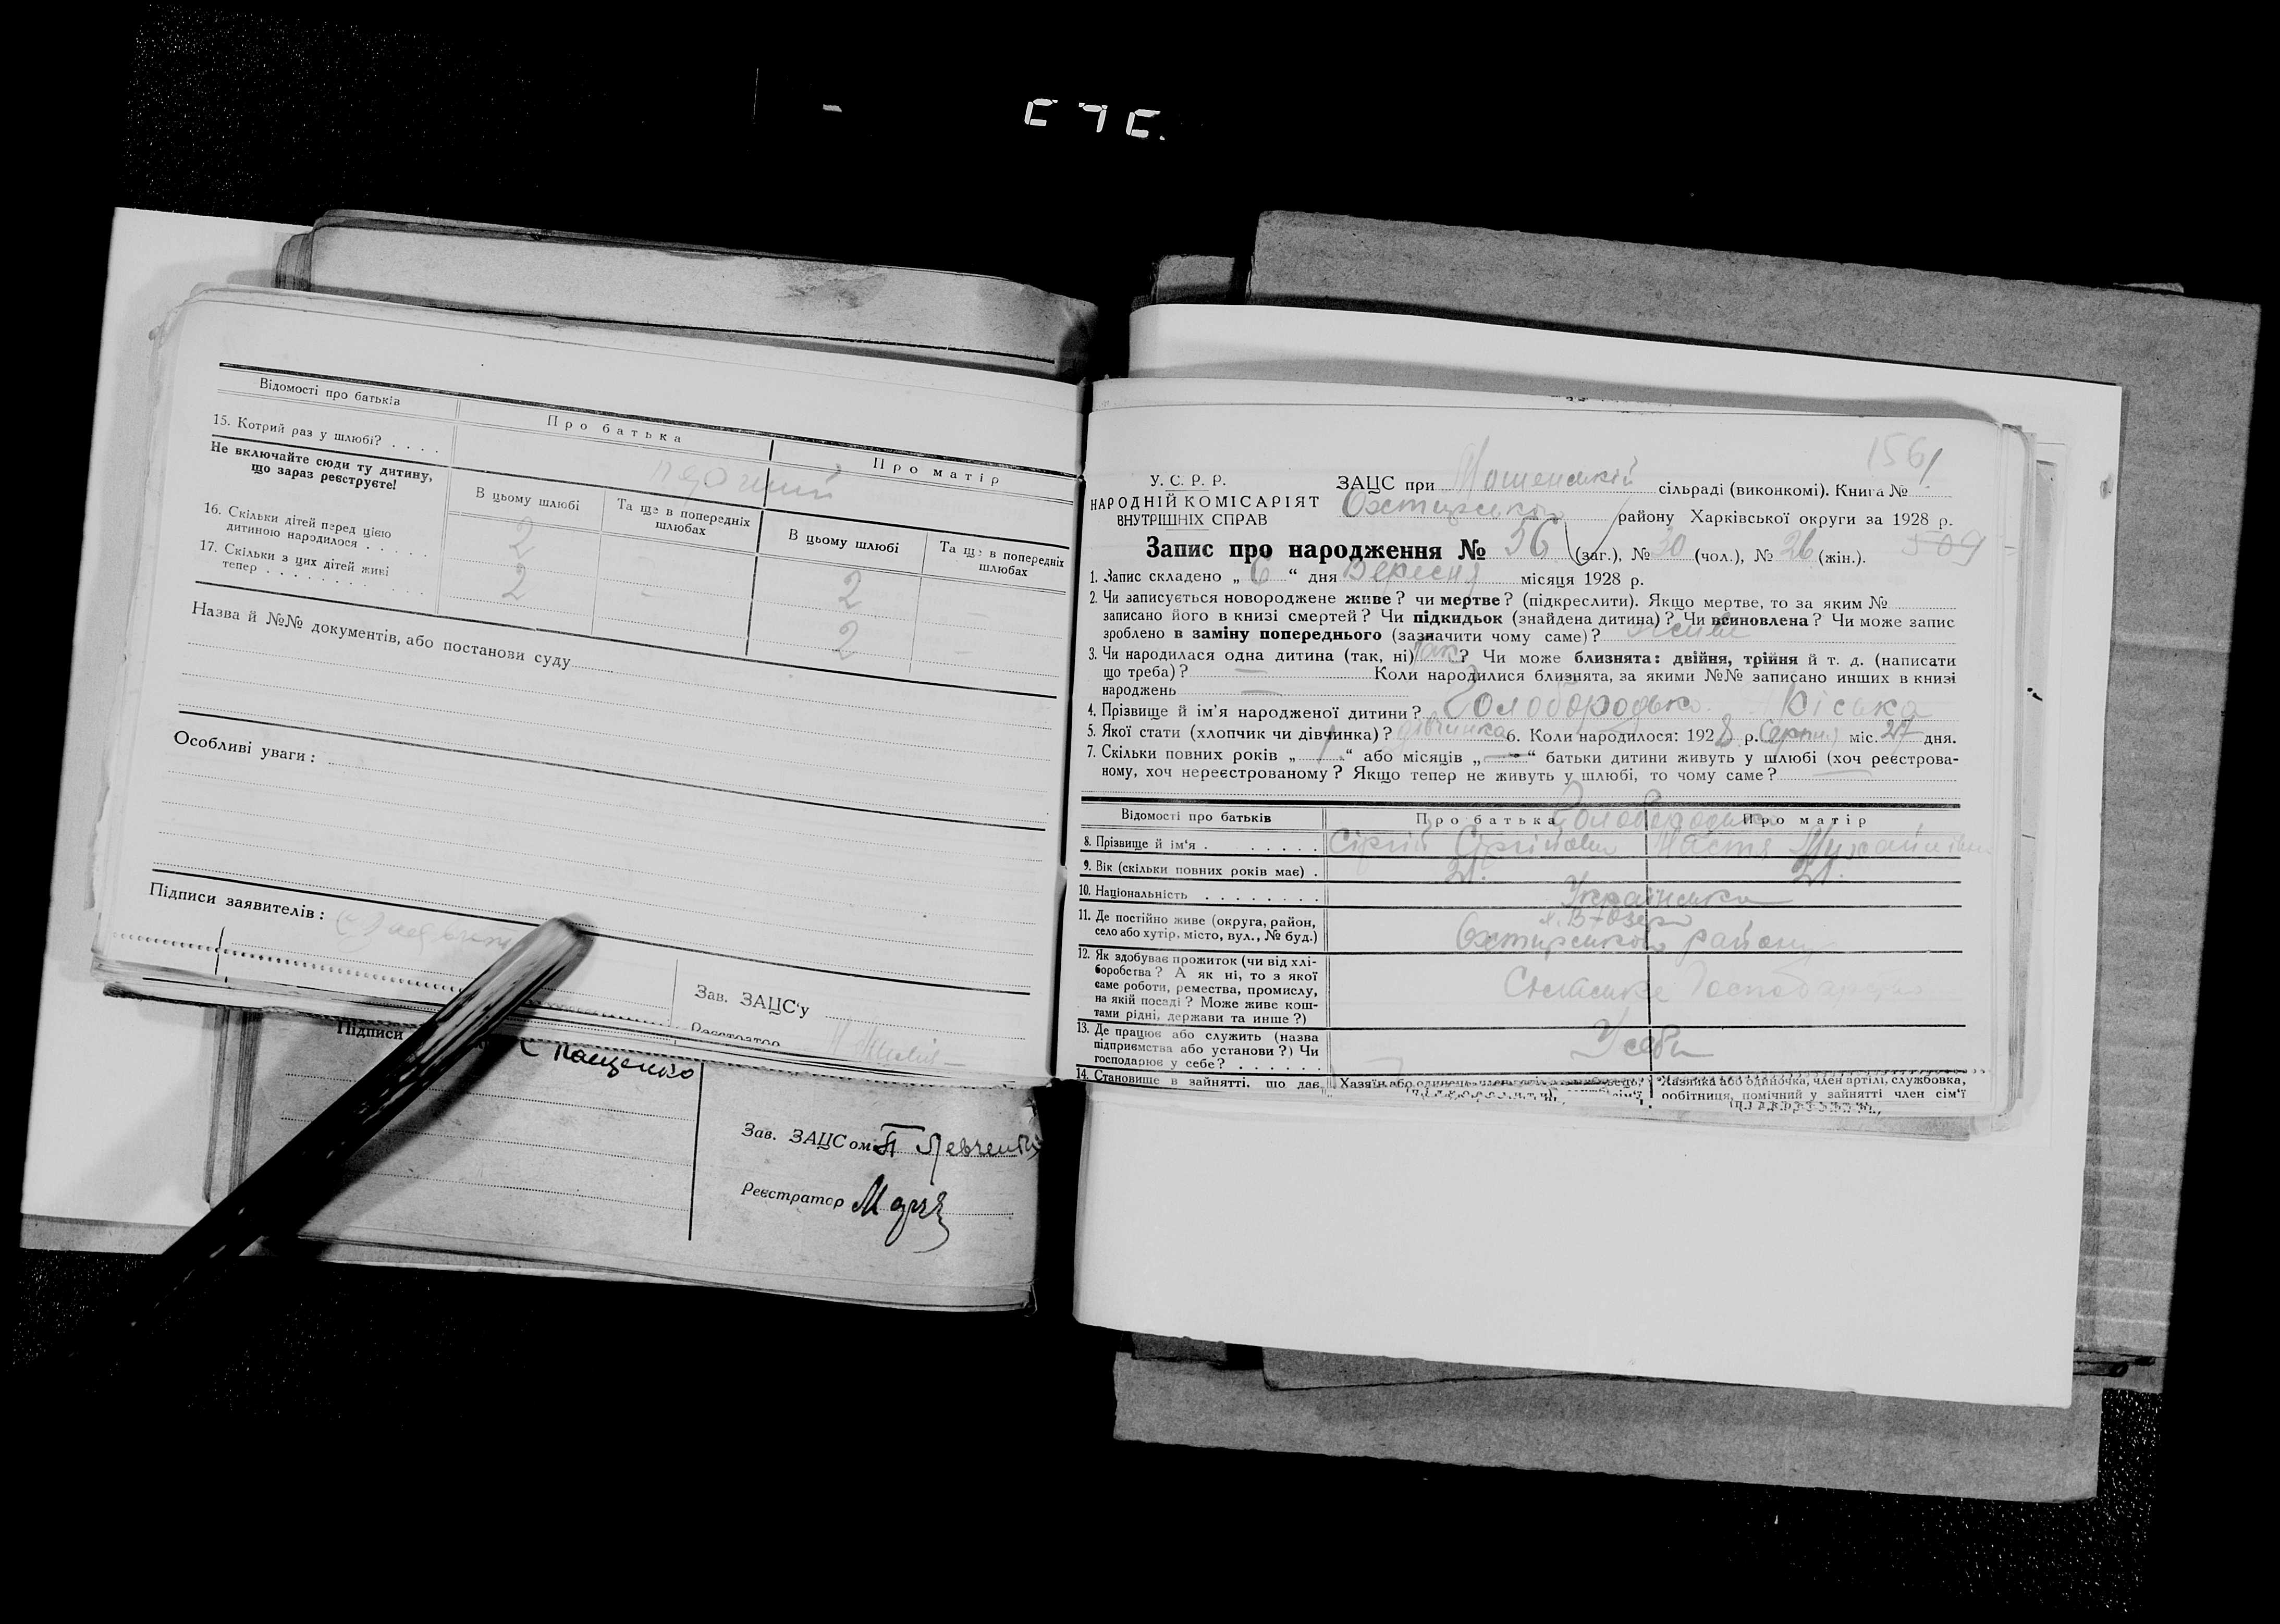 Відомості про батьків
Про батька
Про матір
15. Котрий раз у шлюбі? . . . .
Не включайте сюди ту дитину,
що зараз реєструєте!
В цьому шлюбі
Та ще в попередніх
шлюбах
В цьому шлюбі
Та ще в попередніх
шлюбах
16. Скільки дітей перед цією
дитиною народилося . . . . . 2 2 —
17. Скільки з цих дітей живі
тепер . . . . . . . . . 2 - 2 —
Назва й №№ документів, або постанови суду
Особливі уваги:
Підписи заявителів:
Зав. ЗАЦС'у
Реєстратор
Підписи
Пащенко
Зав. ЗАЦСом П Левченко
Реєстратор
156
У. С. Р. Р.
НАРОДНІЙ КОМІСАРІЯТ
ВНУТРІШНІХ СПРАВ
ЗАЦС при сільраді (виконкомі). Книга №
Охтирського району Харківської округи за 1928 р.
509
Запис про народження № 56 (заг.), № 30 (чол.), № 26 (жін.).
1. Запис складено „ 6 “ дня Вересня місяця 1928 р.
2. Чи записується новороджене живе? чи мертве? (підкреслити). Якщо мертве, то за яким №
записано його в книзі смертей? Чи підкидьок (знайдена дитина)? Чи всиновлена? Чи може запис
зроблено в заміну попереднього (зазначити чому саме)? живе
3. Чи народилася одна дитина (так, ні) так? Чи може близнята: двійня, трійня й т. д. (написати
що треба)? — Коли народилися близнята, за якими №№ записано инших в книзі
народжень —
4. Прізвище й ім'я народженої дитини? Голобородько
5. Якої стати (хлопчик чи дівчинка)? дівчинка 6. Коли народилося: 1928 р. Серпня міс. 27 дня.
7. Скільки повних років „ “ або місяців „ — “ батьки дитини живуть у шлюбі (хоч реєстрова-
ному, хоч нереєстрованому? Якщо тепер не живуть у шлюбі, то чому саме? —
Відомості про батьків
Про батька
Про матір
Голобородько
8. Прізвище й ім'я . . . . . . Сіргій Сіргійович Настя Михайлівна
9. Вік (скільки повних років має) . 21. 21.
10. Національність . . . . . . . . Українська
11. Де постійно живе (округа, район,
село або хутір, місто, вул., № буд.)
Охтирського району
12. Як здобуває прожиток (чи від хлі-
боробства? А як ні, то з якої
саме роботи, ремества, промислу,
на якій посаді? Може живе кош-
тами рідні, держави та инше?)
Сільське Господарство
13. Де працює або служить (назва
підприємства або установи?) Чи
господарює у себе? . . . . . .
У себе
14. Становище в зайнятті, що дає
Хазяїн або
Хазяйка або одиночка, член артілі, службовка,
робітниця, помічний у зайнятті член сім'ї